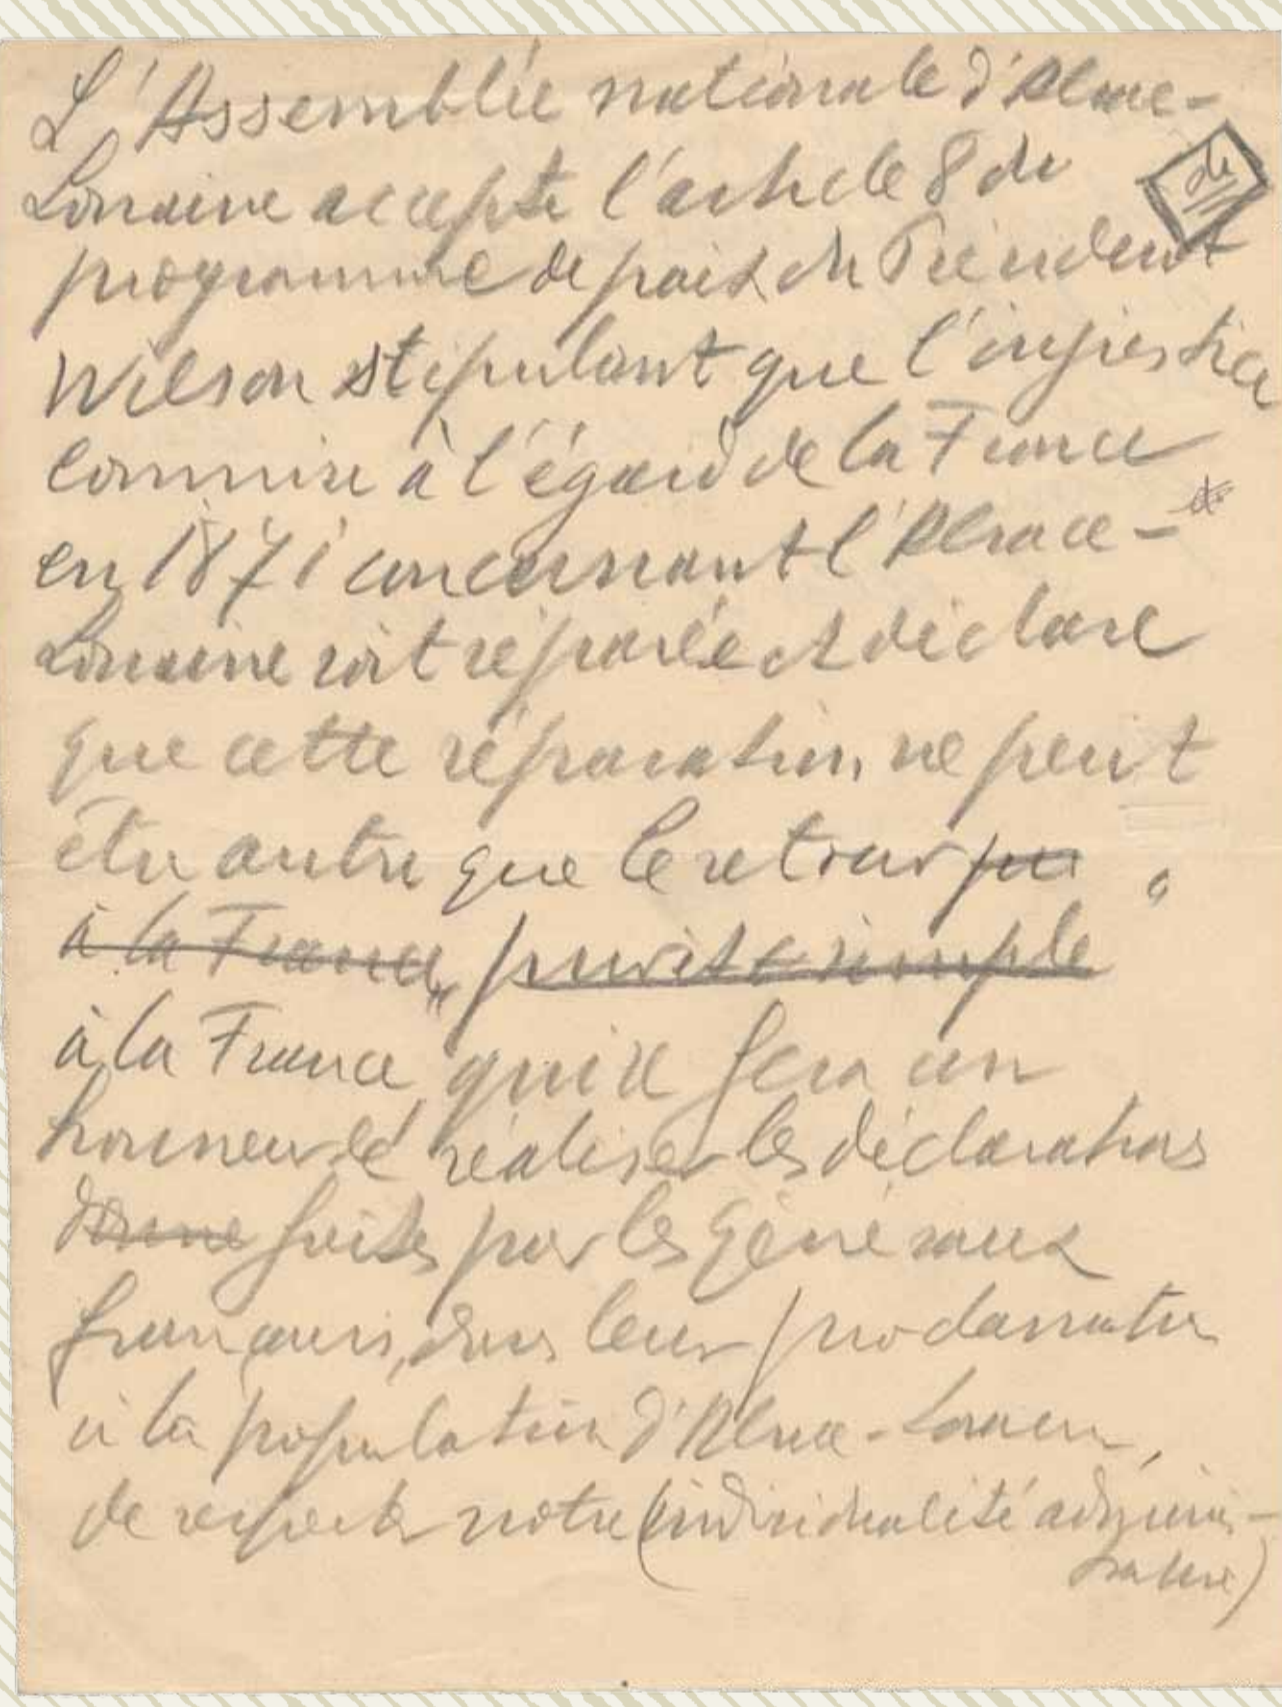 L'Assemblée nationale d'Alsace-
Lorraine accepte l'article 8 du
de
programme de paix du Président
Wilson stipulant que l'injustice
commise à l'égard de la France
en 1871 concernant l'Alsace-
Lorraine soit réparée et déclare
que cette réparation ne peut
être autre que le retour pu
à la France, pur et simple
à la France, qui se fera un
honneur de réaliser les déclarations
faites par les généraux
français, dans leur proclamation
à la population d'Alsace-Lorraine,
de respecter notre (individualité adminis-
trative)